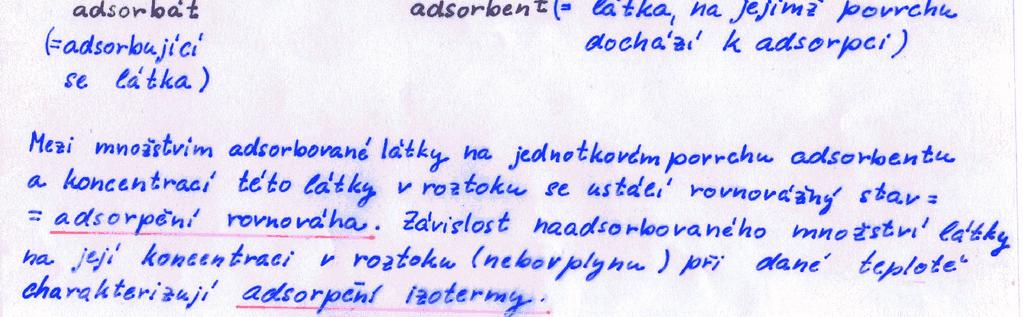 adsorbát adsorbent (= látka, na jejímž povrchu
(=adsorbující dochází k adsorpci)
se látka)
Mezi množstvím adsorbované látky na jednotkovém povrchu adsorbentu
a koncentrací této látky v roztoku se ustálí rovnovážný stav =
= adsorpční rovnováha. Závislost naadsorbovaného množství látky
na její koncentraci v roztoku (nebo v plynu) při dané teplotě
charakterizují adsorpční izotermy.